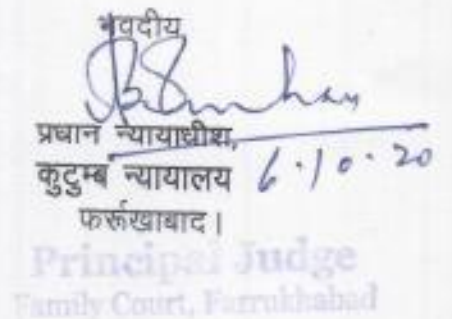 भवदीय
प्रधान न्यायाधीश,
कुटुम्ब न्यायालय 6.10.20
फर्रूखाबाद।
Principal Judge
Family Court, Farrukhabad